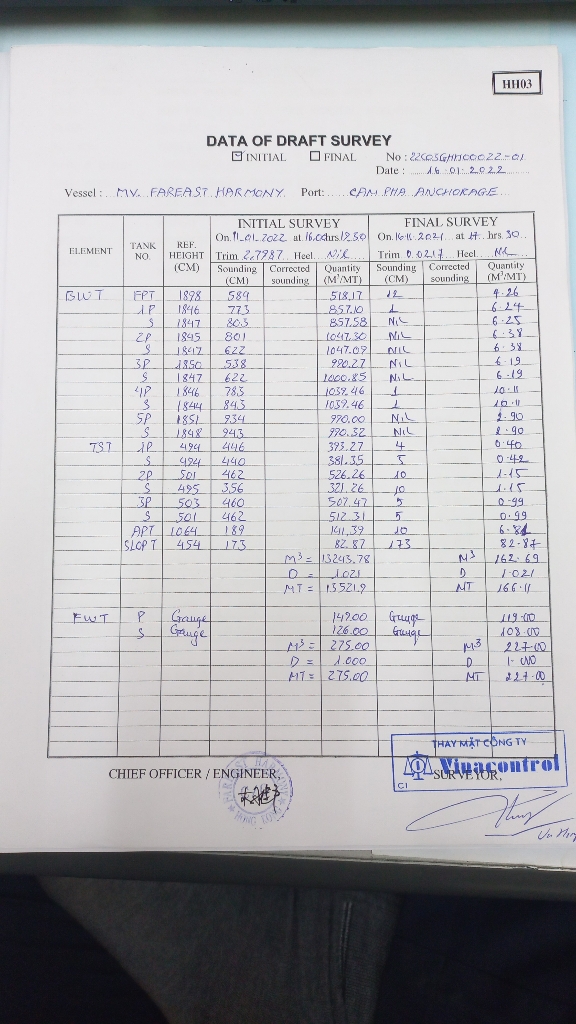 HH03
DATA OF DRAFT SURVEY
☑ INITIAL ☐ FINAL No : 22C03GHH00022-01
Date : 16.01.2022
Vessel : MV. FAREAST HARMONY Port: CAM PHA ANCHORAGE
ELEMENT TANK NO. REF. HEIGHT (CM) INITIAL SURVEY FINAL SURVEY
On 11-01-2022 at hrs On at 17 hrs 30
Trim 2.7987 Heel Nil Trim 0.0217 Heel Nil
Sounding (CM) Corrected sounding Quantity (M³/MT) Sounding (CM) Corrected sounding Quantity (M³/MT)
BWT FPT 1898 589 518.17 12 4.26
1P 1846 773 857.10 1 6.24
S 1847 803 857.58 NiL 6.25
2P 1845 801 1047.30 NiL 6.38
S 1847 622 1047.09 NiL 6.38
3P 1850 538 990.27 NiL 6.19
S 1847 622 1000.85 NiL 6.19
4P 1846 783 1039.46 1 10.11
S 1844 843 1039.46 1 10.11
5P 1851 934 990.00 Nil 2.90
S 1848 943 990.32 NiL 2.90
TST 1P 494 446 393.27 4 0.40
S 494 440 381.35 5 0.42
2P 501 462 526.26 10 1.15
S 495 356 321.26 10 1.15
3P 503 460 507.47 5 0.99
S 501 462 512.31 5 0.99
APT 1064 189 141.39 10 6.81
SLOP T 454 173 82.87 173 82.87
M³ = 13243.78 M³ 162.69
D = 1.021 D 1.021
MT = 13521.9 MT 166.11
FWT P Gauge 149.00 Gauge 119.00
S Gauge 126.00 Gauge 108.00
M³ = 275.00 M³ 227.00
D = 1.000 D 1.000
MT = 275.00 MT 227.00
THAY MẶT CÔNG TY
Vinacontrol
CI
CHIEF OFFICER / ENGINEER, SURVEYOR,
FAREAST HARMONY
HONG KONG